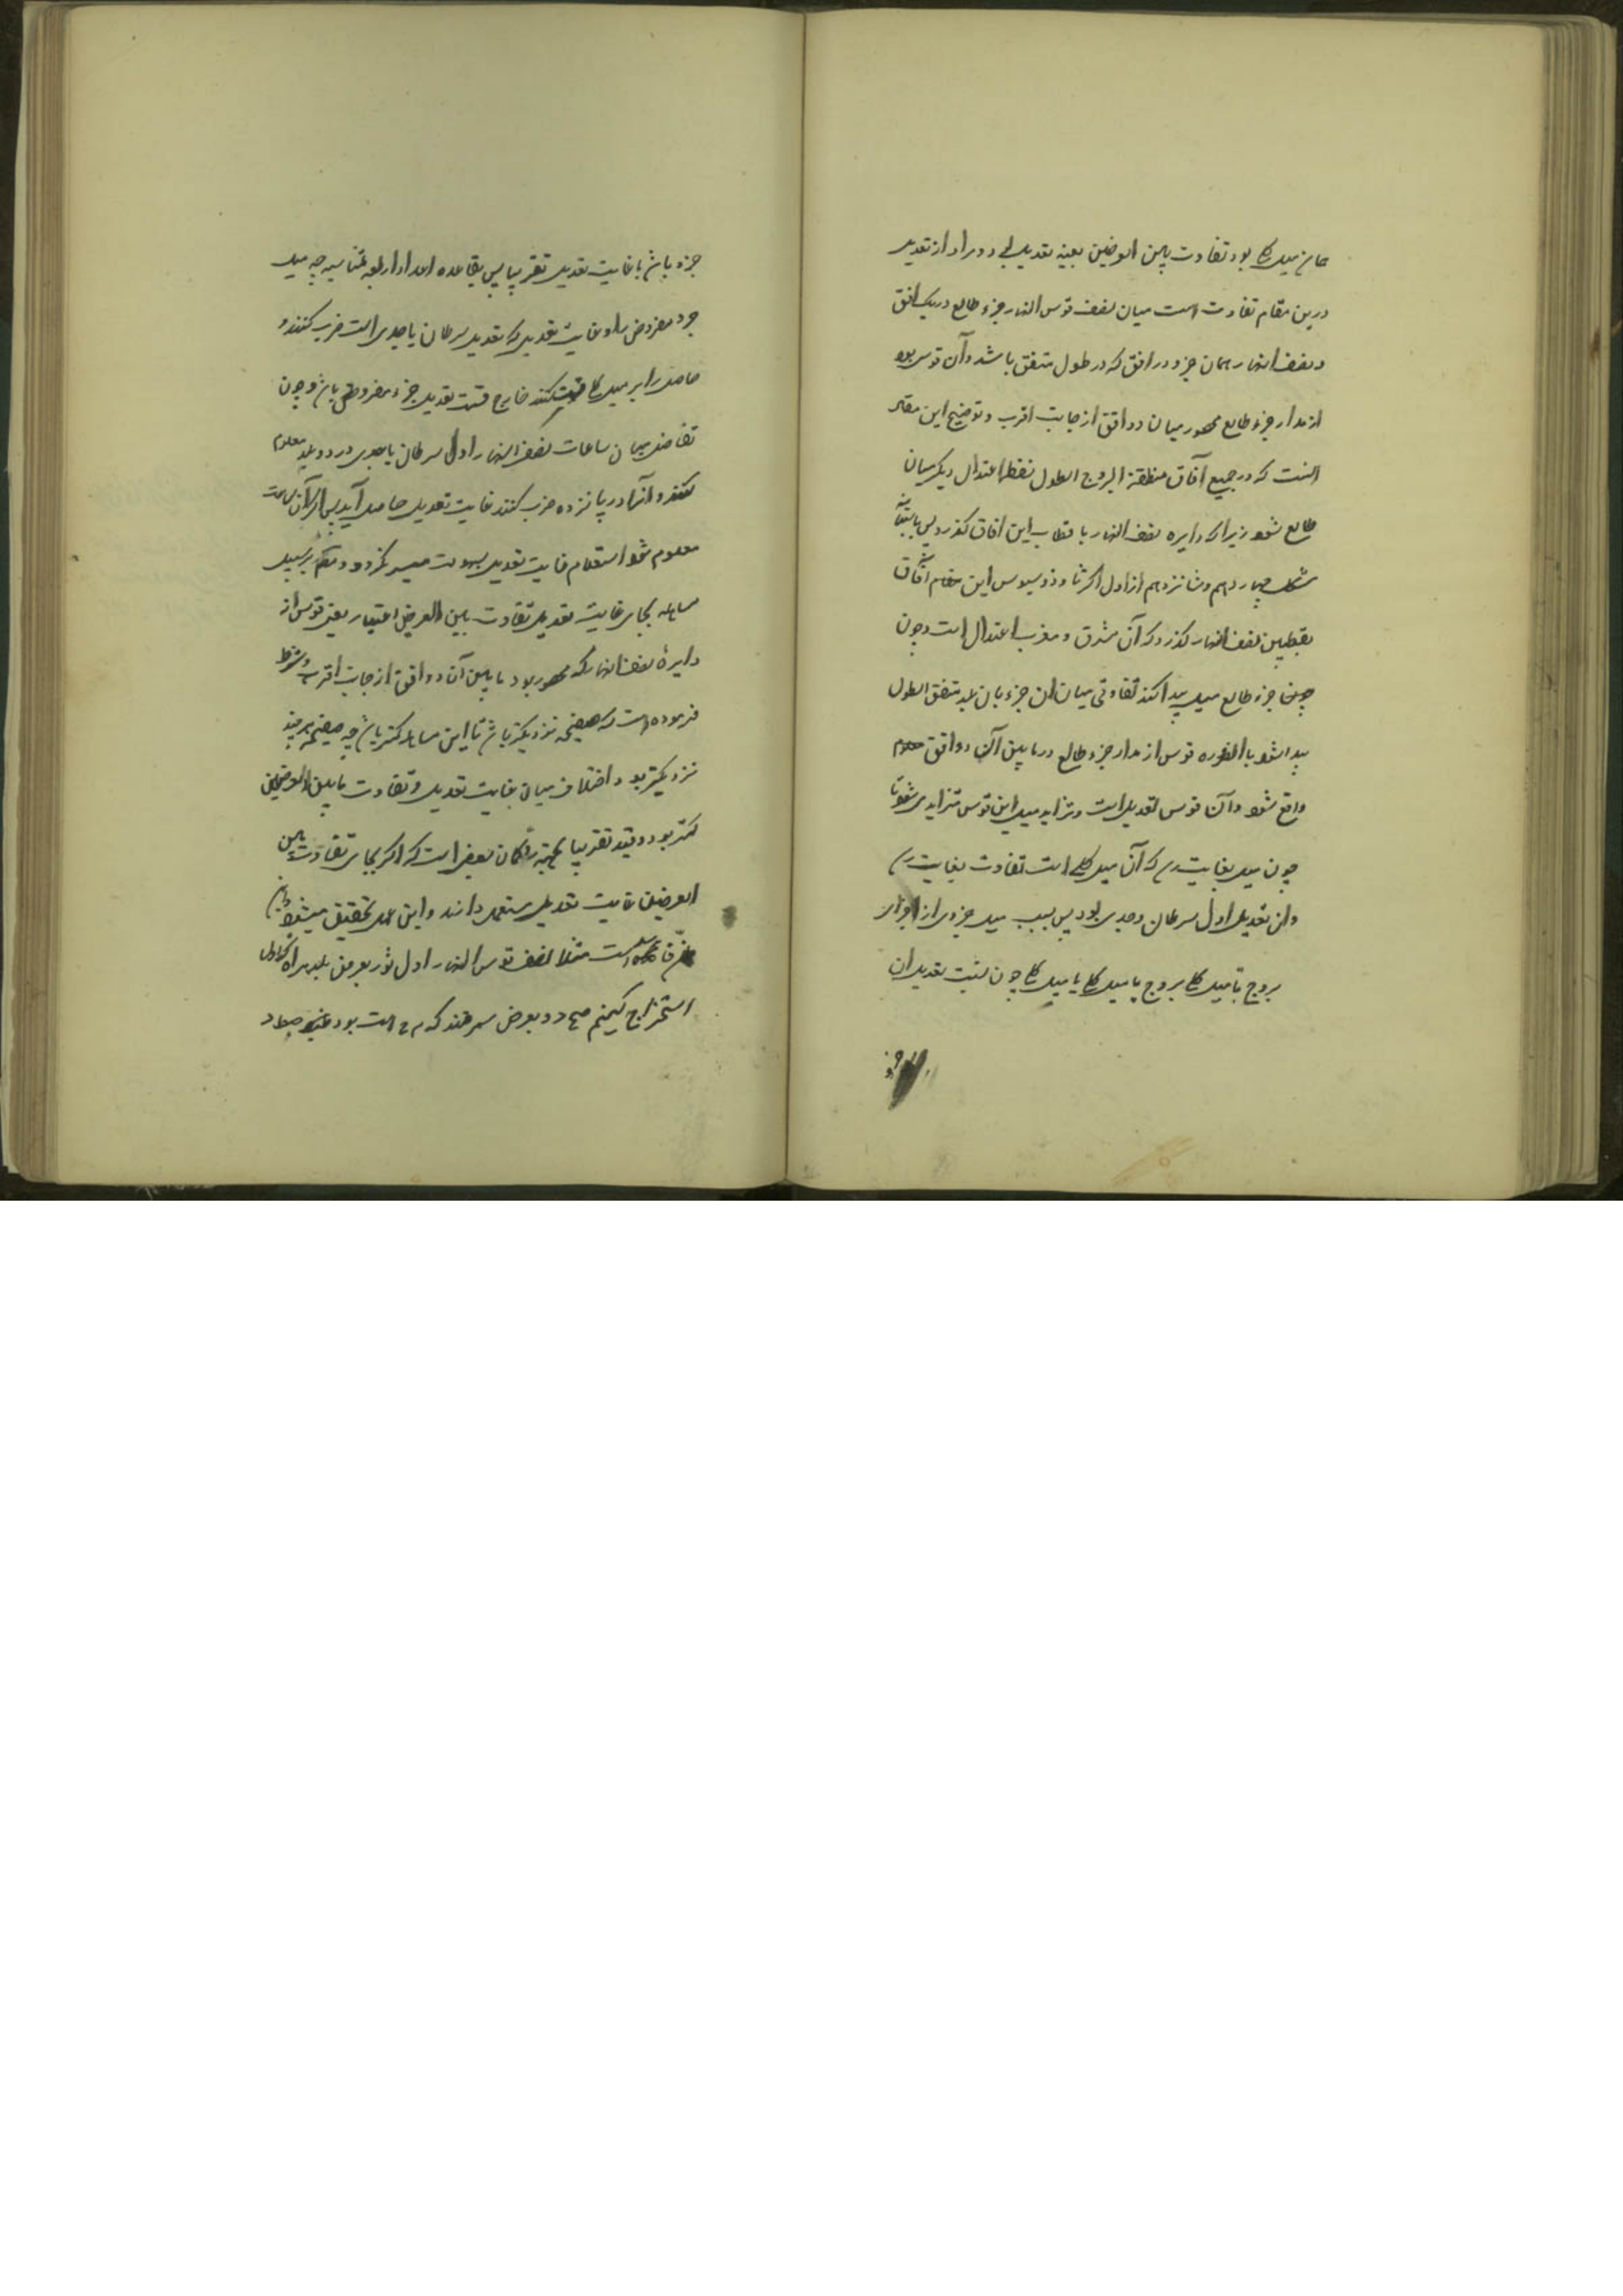 تمام میل کلی بود تفاوت بین العرضین بعینه تعدیل بود و مراد از تعدیل
درین مقام تفاوت است میان نصف قوس النهار جزء طالع در یک افق
و نصف النهار همان جزء در افق که در طول متفق باشد و آن قوس بود
از مدار جزء طالع محصور میان دو افق از جانب اقرب و توضیح این مقام
آنست که در جمیع آفاق منطقة البروج الطول نقطه اعتدال دیگر میان
طالع شود زیرا که دایره نصف النهار باقطاب این افاق گذرد پس
شکل چهاردهم و شانزدهم از اول اکر ثاوذوسیوس این آفاق
بقطبین نصف النهار گذرد که آن مشرق و مغرب اعتدال است و چون
جزء طالع میل پیدا کند تفاوتی میان آن جزء بان بلد متفق الطول
پیدا شود بالضروره قوس از مدار جزء طالع در مابین آن دو افق
واقع شود و آن قوس تعدیل است و تزاید میل این قوس متزاید می شود تا
چون میل بغایت رسد که آن میل کلی است تفاوت بغایت رسد
و ان تعدیل اول سرطان و جدی بود پس نسبت میل جزوی از اجزای
بروج با میل کلی چون نسبت تعدیل ان
جزء
جزء باشد با غایت تعدیل تقریبا پس بقاعده اعداد اربعه متناسبه چه میل
جزء مفروض را در غایت تعدیل که تعدیل سرطان یا جدی است ضرب کنند و
حاصل را بر میل کلی قسمت کنند خارج قسمت تعدیل جزء مفروض باشد و چون
تفاضل میان ساعات نصف النهار اول سرطان یا جدی در دو بلد معلوم
کنند و آنرا در پانزده ضرب کنند غایت تعدیل حاصل آید پس اگر آن ساعات
معلوم شود استعلام غایت تعدیل بسهولت میسر گردد و بر سبیل
مساهله بجای غایت تعدیل تفاوت بین العرضین اعتبار یعنی قوس از
دایرهٔ نصف النهار که محصور بود مابین آن دو افق از جانب اقرب و شرط
فرموده است که صفیحه نزدیکتر باشد تا این مساهله کمتر باشد چه صفیحه هر چند
نزدیکتر بود اختلاف میان غایت تعدیل و تفاوت مابین العرضین
کمتر بود و قید تقریبا بجهة گمان بعضی است که اگر بجای تفاوت بین
العرضین غایت تعدیل مستعمل دارند و این عمل تحقیق میشود
است مثلا نصف قوس النهار اول ثور بعرض بلد هراه
استخراج کنیم و بعرض سمرقند که است بود